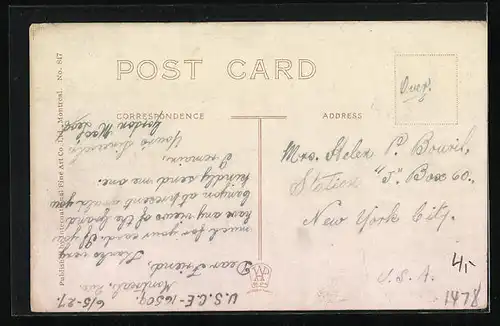 POST CARD
CORRESPONDENCE
ADDRESS
Over.
Published by International Fine Art Co. Ltd., Montreal. No. 817
U.S.C.E-16509.
6/5-27.
Montreal, Que.
Dear Friend,
Thanks very
much for your card. If you
have any views of the Grand
Canyon at present would you
kindly send me one.
I remain,
Yours sincerely
Gordon
Mrs. Helen P.
Station "J" Box 60.,
New York City.
U.S.A.
4,-
1478